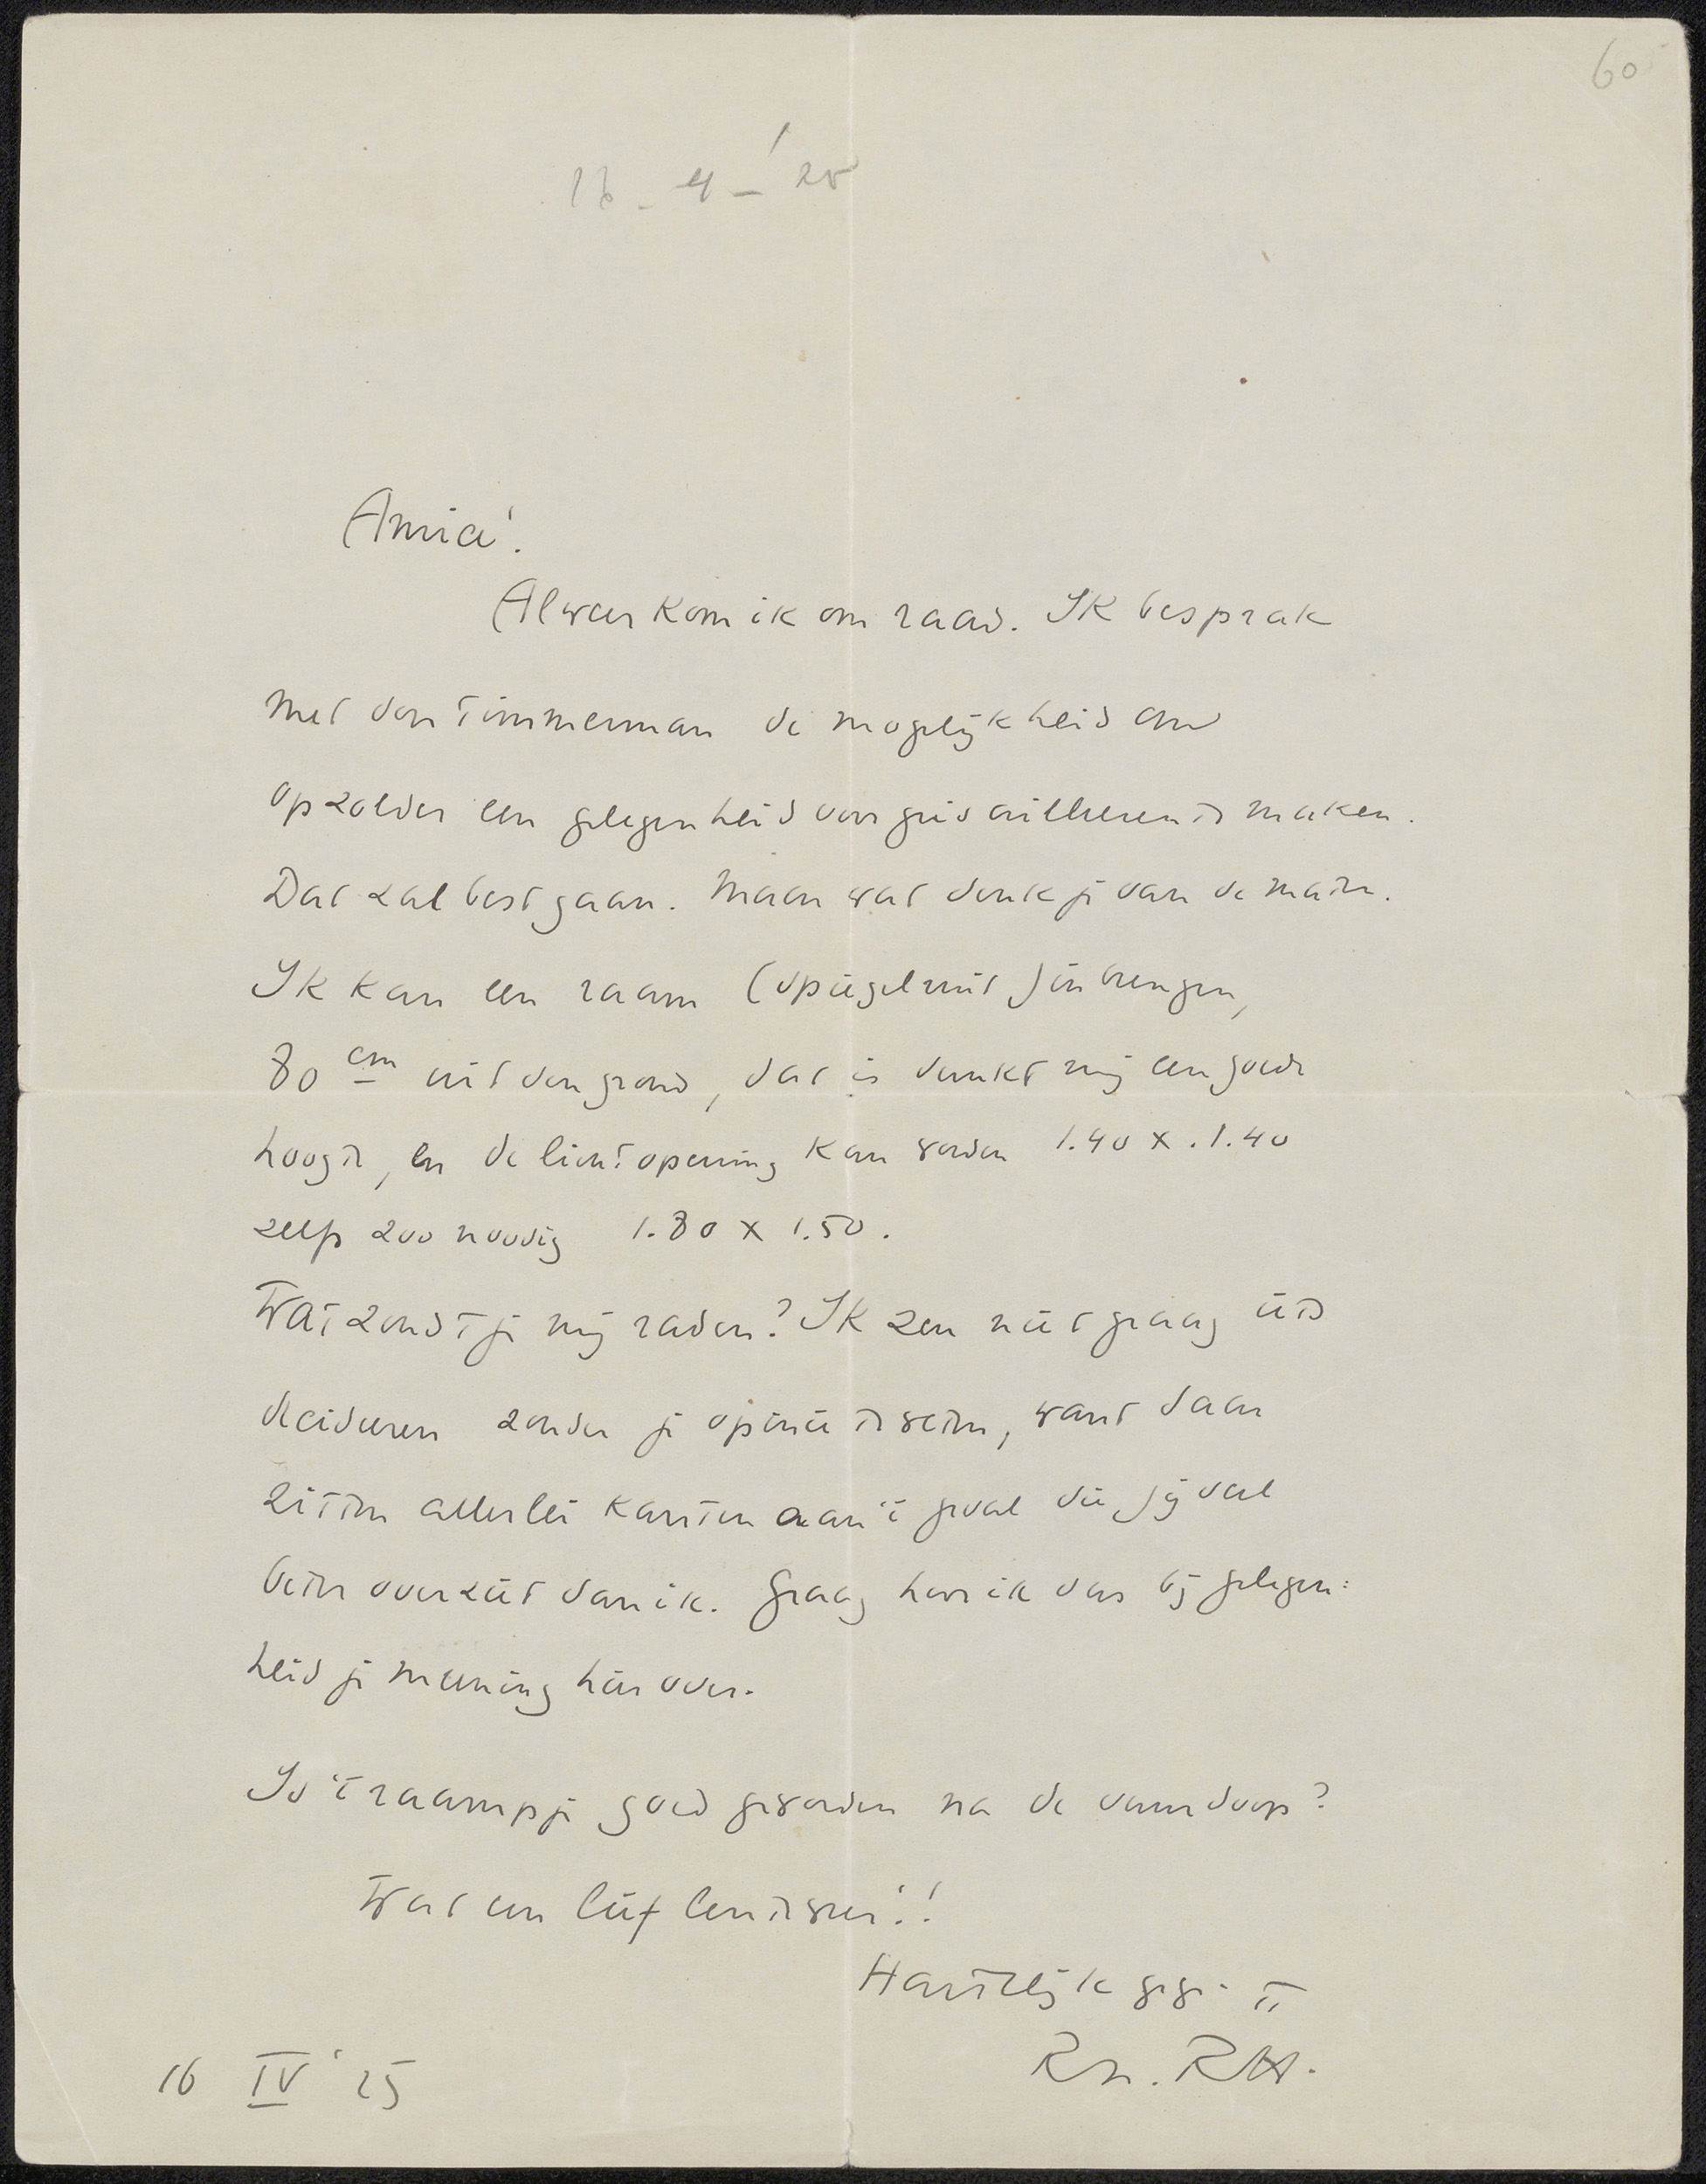 60
16 - 4 - '25
Amice!
Alweer kom ik om raad. Ik besprak
met den timmerman de mogelijkheid om
op zolder een gelegenheid voor grisailleeren te maken.
Dat zal best gaan. Maar wat denk je van de maten.
Ik kan een raam (spiegelruit) inbrengen,
80 cm uit den grond, dat is dunkt mij een goede
hoogte, en de lichtopening kan worden 1.40 x 1.40
zelfs zoo noodig 1.80 x 1.50.
Wat zoudt je mij raden? Ik zou niet graag iets
decideeren zonder je opinie te weten, want daar
zitten allerlei kanten aan 't geval die jij wel
beter overziet dan ik. Graag hoor ik dus bij gelegen:
heid je meening hierover.
Is 't raampje goed geworden na de vuurdoop?
Wat een lief lenteweer!!
Hartelijk gegr. tt
Rn. RH.
16 IV '25